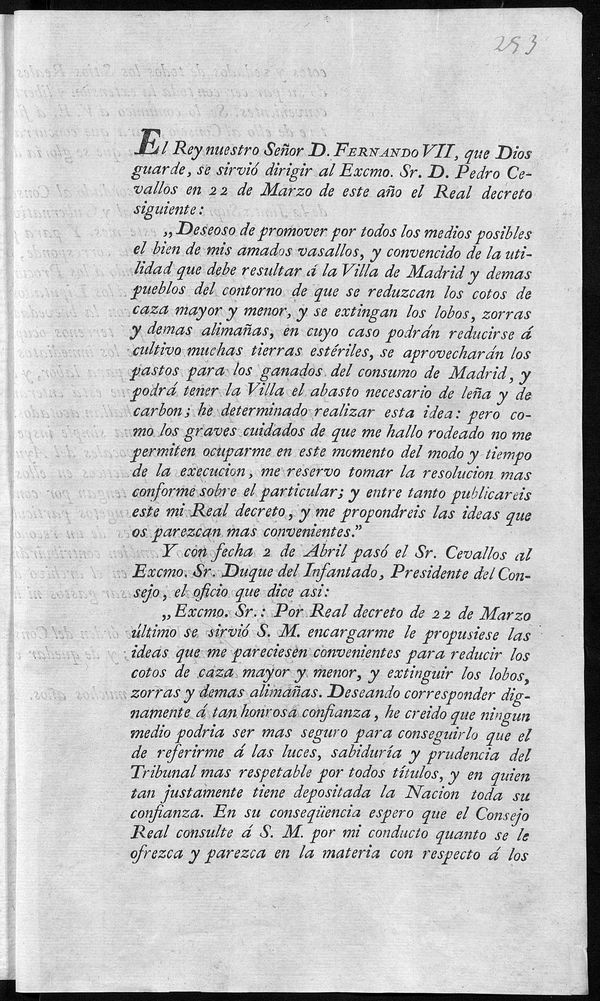 253
El Rey nuestro Señor D. FERNANDO VII, que Dios
guarde, se sirvió dirigir al Excmo. Sr. D. Pedro Ce-
vallos en 22 de Marzo de este año el Real decreto
siguiente:
„Deseoso de promover por todos los medios posibles
el bien de mis amados vasallos, y convencido de la uti-
lidad que debe resultar á la Villa de Madrid y demas
pueblos del contorno de que se reduzcan los cotos de
caza mayor y menor, y se extingan los lobos, zorras
y demas alimañas, en cuyo caso podrán reducirse á
cultivo muchas tierras estériles, se aprovecharán los
pastos para los ganados del consumo de Madrid, y
podrá tener la Villa el abasto necesario de leña y de
carbon; he determinado realizar esta idea: pero co-
mo los graves cuidados de que me hallo rodeado no me
permiten ocuparme en este momento del modo y tiempo
de la execucion, me reservo tomar la resolucion mas
conforme sobre el particular; y entre tanto publicareis
este mi Real decreto, y me propondreis las ideas que
os parezcan mas convenientes.”
Y con fecha 2 de Abril pasó el Sr. Cevallos al
Excmo. Sr. Duque del Infantado, Presidente del Con-
sejo, el oficio que dice asi:
„Excmo. Sr.: Por Real decreto de 22 de Marzo
último se sirvió S. M. encargarme le propusiese las
ideas que me pareciesen convenientes para reducir los
cotos de caza mayor y menor, y extinguir los lobos,
zorras y demas alimañas. Deseando corresponder dig-
namente á tan honrosa confianza, he creido que ningun
medio podria ser mas seguro para conseguirlo que el
de referirme á las luces, sabiduría y prudencia del
Tribunal mas respetable por todos títulos, y en quien
tan justamente tiene depositada la Nacion toda su
confianza. En su conseqüencia espero que el Consejo
Real consulte á S. M. por mi conducto quanto se le
ofrezca y parezca en la materia con respecto á los